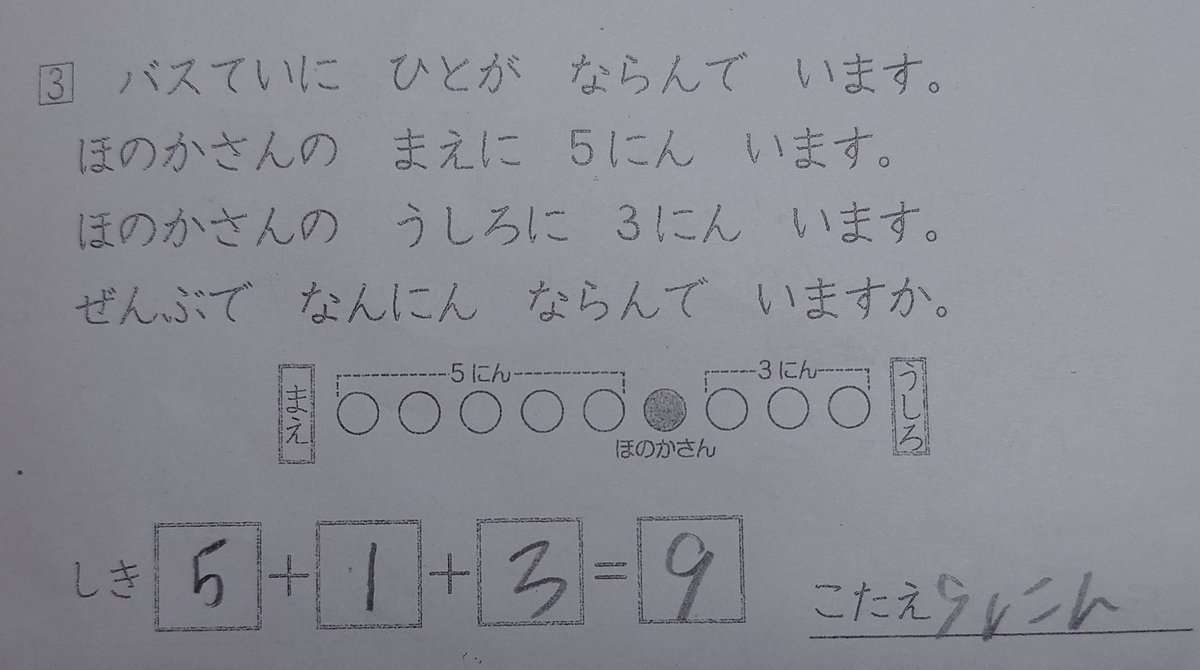 3 バスていに ひとが ならんで います。
ほのかさんの まえに 5にん います。
ほのかさんの うしろに 3にん います。
ぜんぶで なんにん ならんで いますか。
まえ 5にん 3にん うしろ
ほのかさん
しき 5+1+3=9
こたえ にん